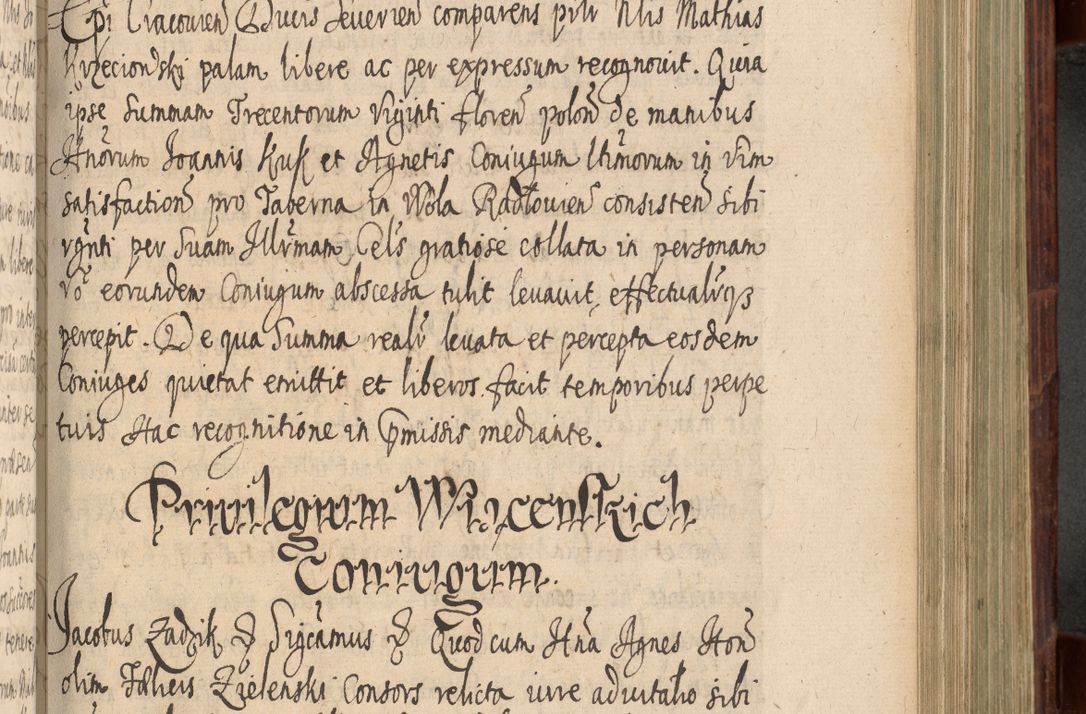 Epi Cracovien Ducis Severien comparens prtr Nlis Mathias
Krzecionski palam libere ac per expressum recognovit. Quia
ipse Summam Trecentorum viginti floren polon de manibus
Hnorum Joannis Kuk et Agnetis Coniugum ltimorum in vim
satisfaction pro Taberna in Wola Radłovien consisten sibi
per Suam Illrmam Cels gratiose collata in personam
vo eorundem Coniugum abscessa tulit levavit, effectualrqz
percepit. De qua Summa realr levata et percepta eosdem
Coniuges quietat emittit et liberos facit temporibus perpe
tuis Hac recognitione in pmissis mediante.
Privilegium
Coniugum.
Jacobus Zadzik Sigcamus Quod cum Hna Agnes Hon
olim Fælicis Zielenski Consors relicta iure advitalio sibi